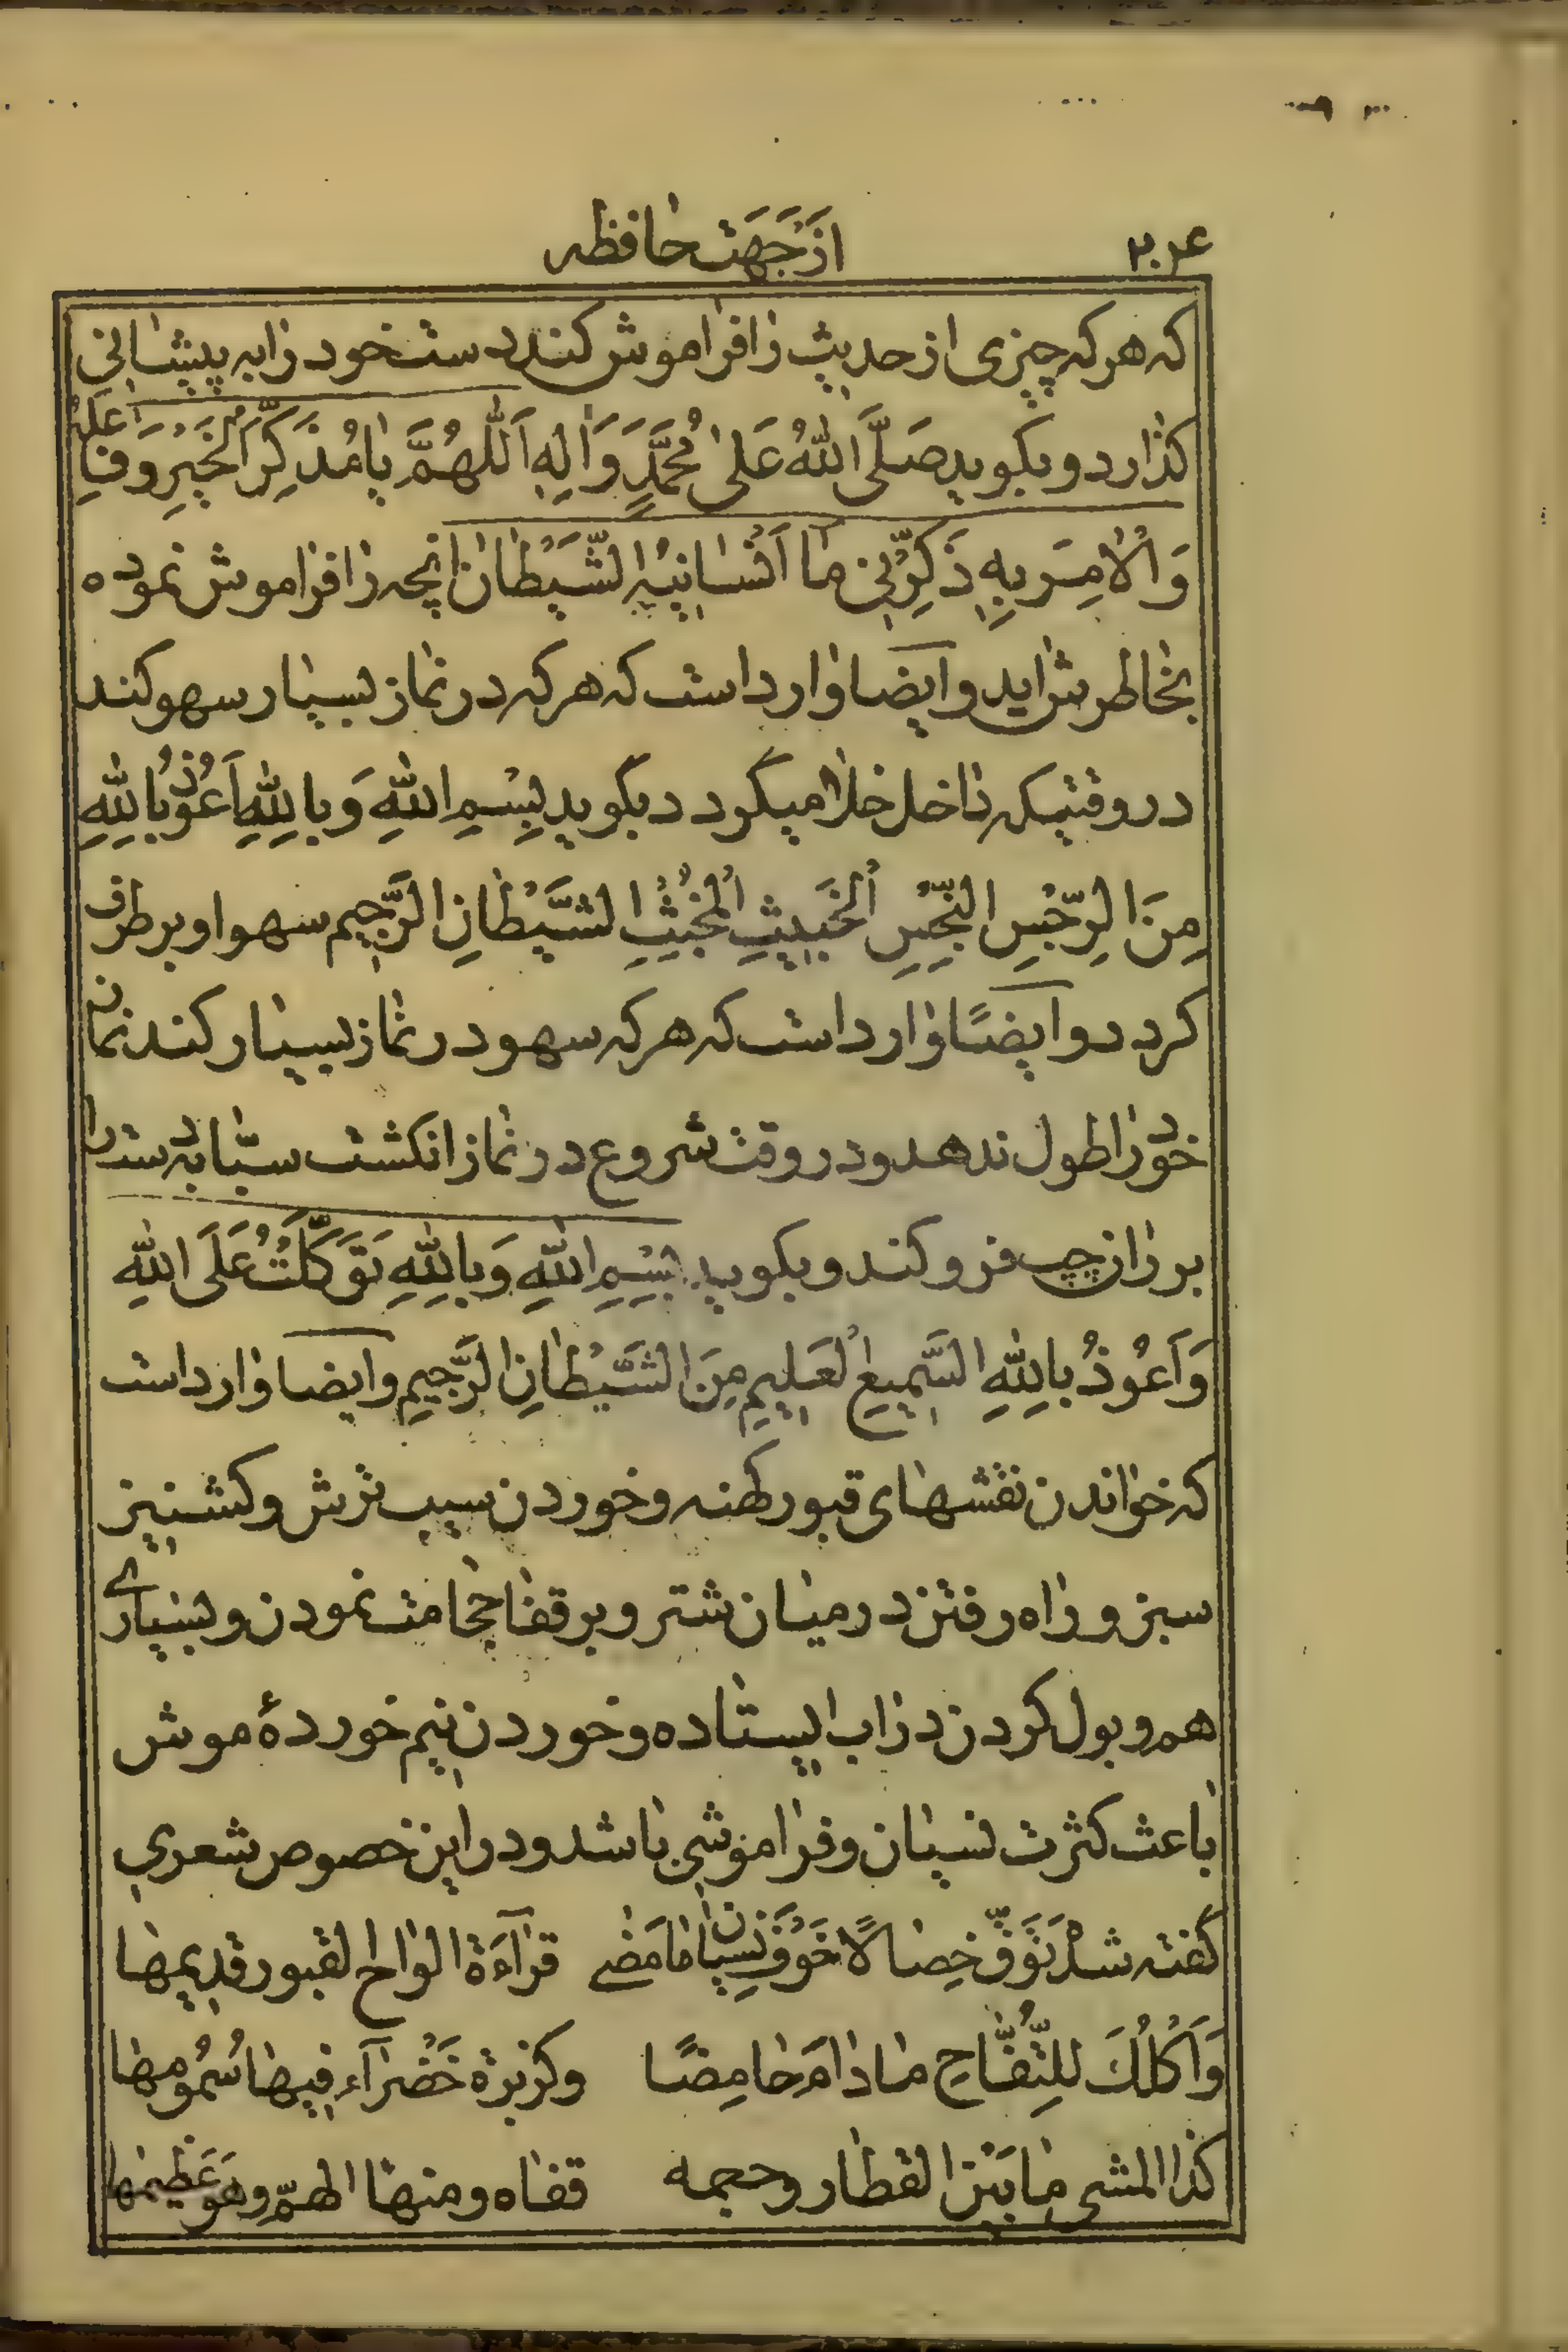 ۲۰۴ از جَهَت حافظه
که هر که چیزی از حدیث را فراموش کند دست خود را به پیشانی
کذارد و بکوید صَلَّی اللهُ عَلیٰ مُحَمَّدٍ وَاٰلِهِ اَللّٰهُمَّ یا مُذَکِّرَ الْخَیْرِ وَفاعِلَهُ
وَالْاٰمِرَ بِهِ ذَکِّرْنی ما اَنْسانیهِ الشَّیْطانُ انچه را فراموش نموده
بخاطرش اید و ایضا وارد است که هر که در نماز بسیار سهو کند
در وقتیکه داخل خلا میکردد بکوید بِسْمِ اللهِ وَبِاللهِ اَعُوذُ بِاللهِ
مِنَ الرِّجْسِ النِّجْسِ الْخَبیثِ الْمُخْبِثِ الشَّیْطانِ الرَّجیم سهو او برطرف
کردد و ایضًا وارد است که هر که سهو در نماز بسیار کند نماز
خود را طول ندهد و در وقت شروع در نماز انکشت سبّابه دست را
بر ران چپ فرو کند و بکوید بِسْمِ اللهِ وَبِاللهِ تَوَکَّلْتُ عَلَی اللهِ
وَاَعُوذُ بِاللهِ السَّمیعِ الْعَلیمِ مِنَ الشَّیْطانِ الرَّجیمِ و ایضا وارد است
که خواندن نقشهای قبور کهنه و خوردن سیب ترش و کشنیز
سبز و راه رفتن در میان شتر و بر قفا حجامت نمودن و بسیاری
هم و بول کردن در اب ایستاده و خوردن نیم خوردهٔ موش
باعث کثرت نسیان و فراموشی باشد و در این خصوص شعری
کفته شد تَوَقَّ خِصالًا خَوْفَ نِسیان مامَضٰی قراءَة الواح القبور قدیمها
وَاَکْلُکَ لِلتُّفّاحِ مادامَ حامِضًا وکزبرة خَضْراء فیها سُمُومها
کذا المشی مابَیْنَ القطار وحجمه قفاه ومنها الهمّ وهو عَظیمها